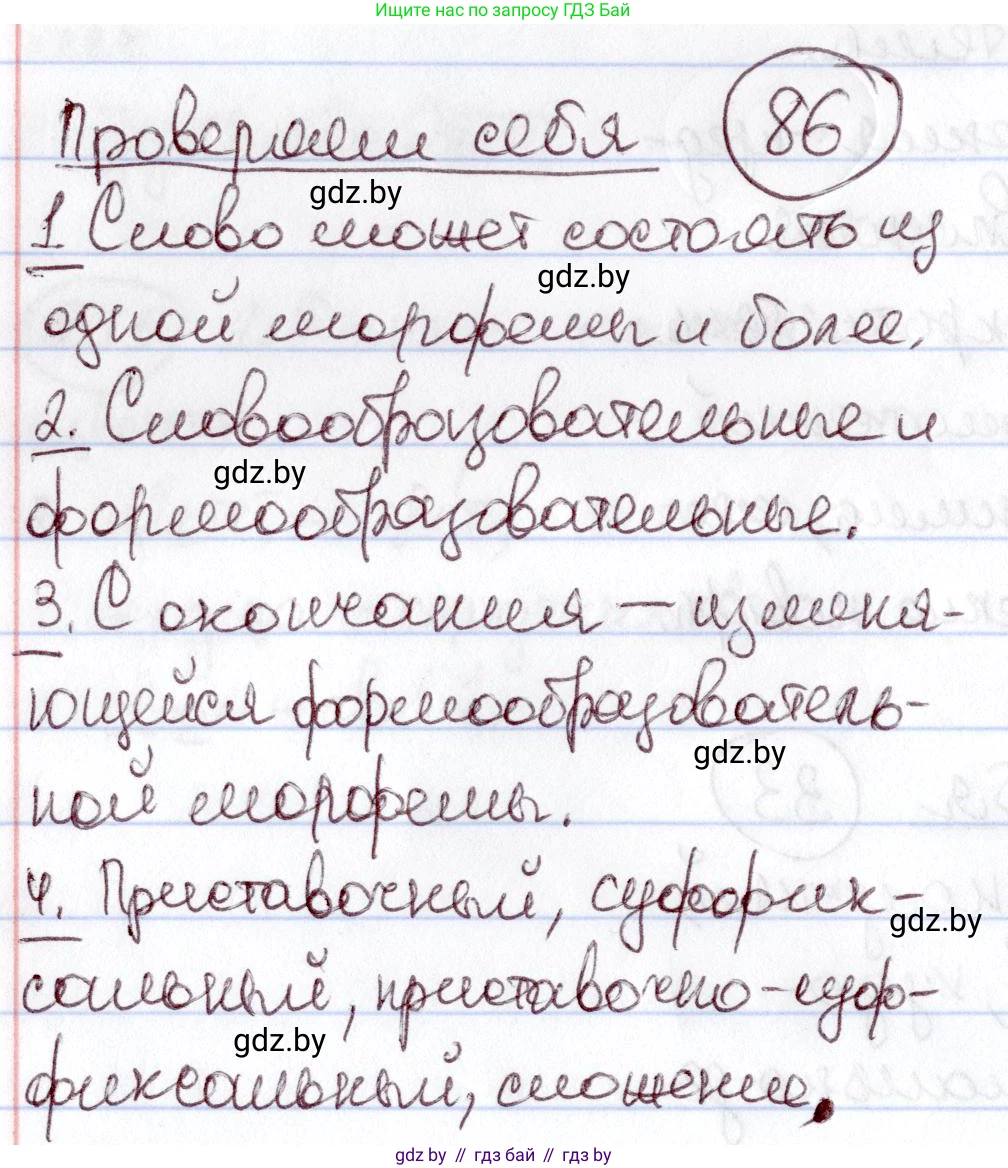 Ищите нас по запросу ГДЗ Бай
Проверяем себя 86
gdz.by
1 Слово может состоять из
gdz.by
одной морфемы и более.
2. Словообразовательные и
gdz.by
формообразовательные.
3. С окончания – изменя-
ющейся формообразователь-
gdz.by
ной морфемы.
4. Приставочный, суффик-
gdz.by
сальный, приставочно-суф-
gdz.by
фиксальный, сложение.
gdz.by // гдз бай // гдз by